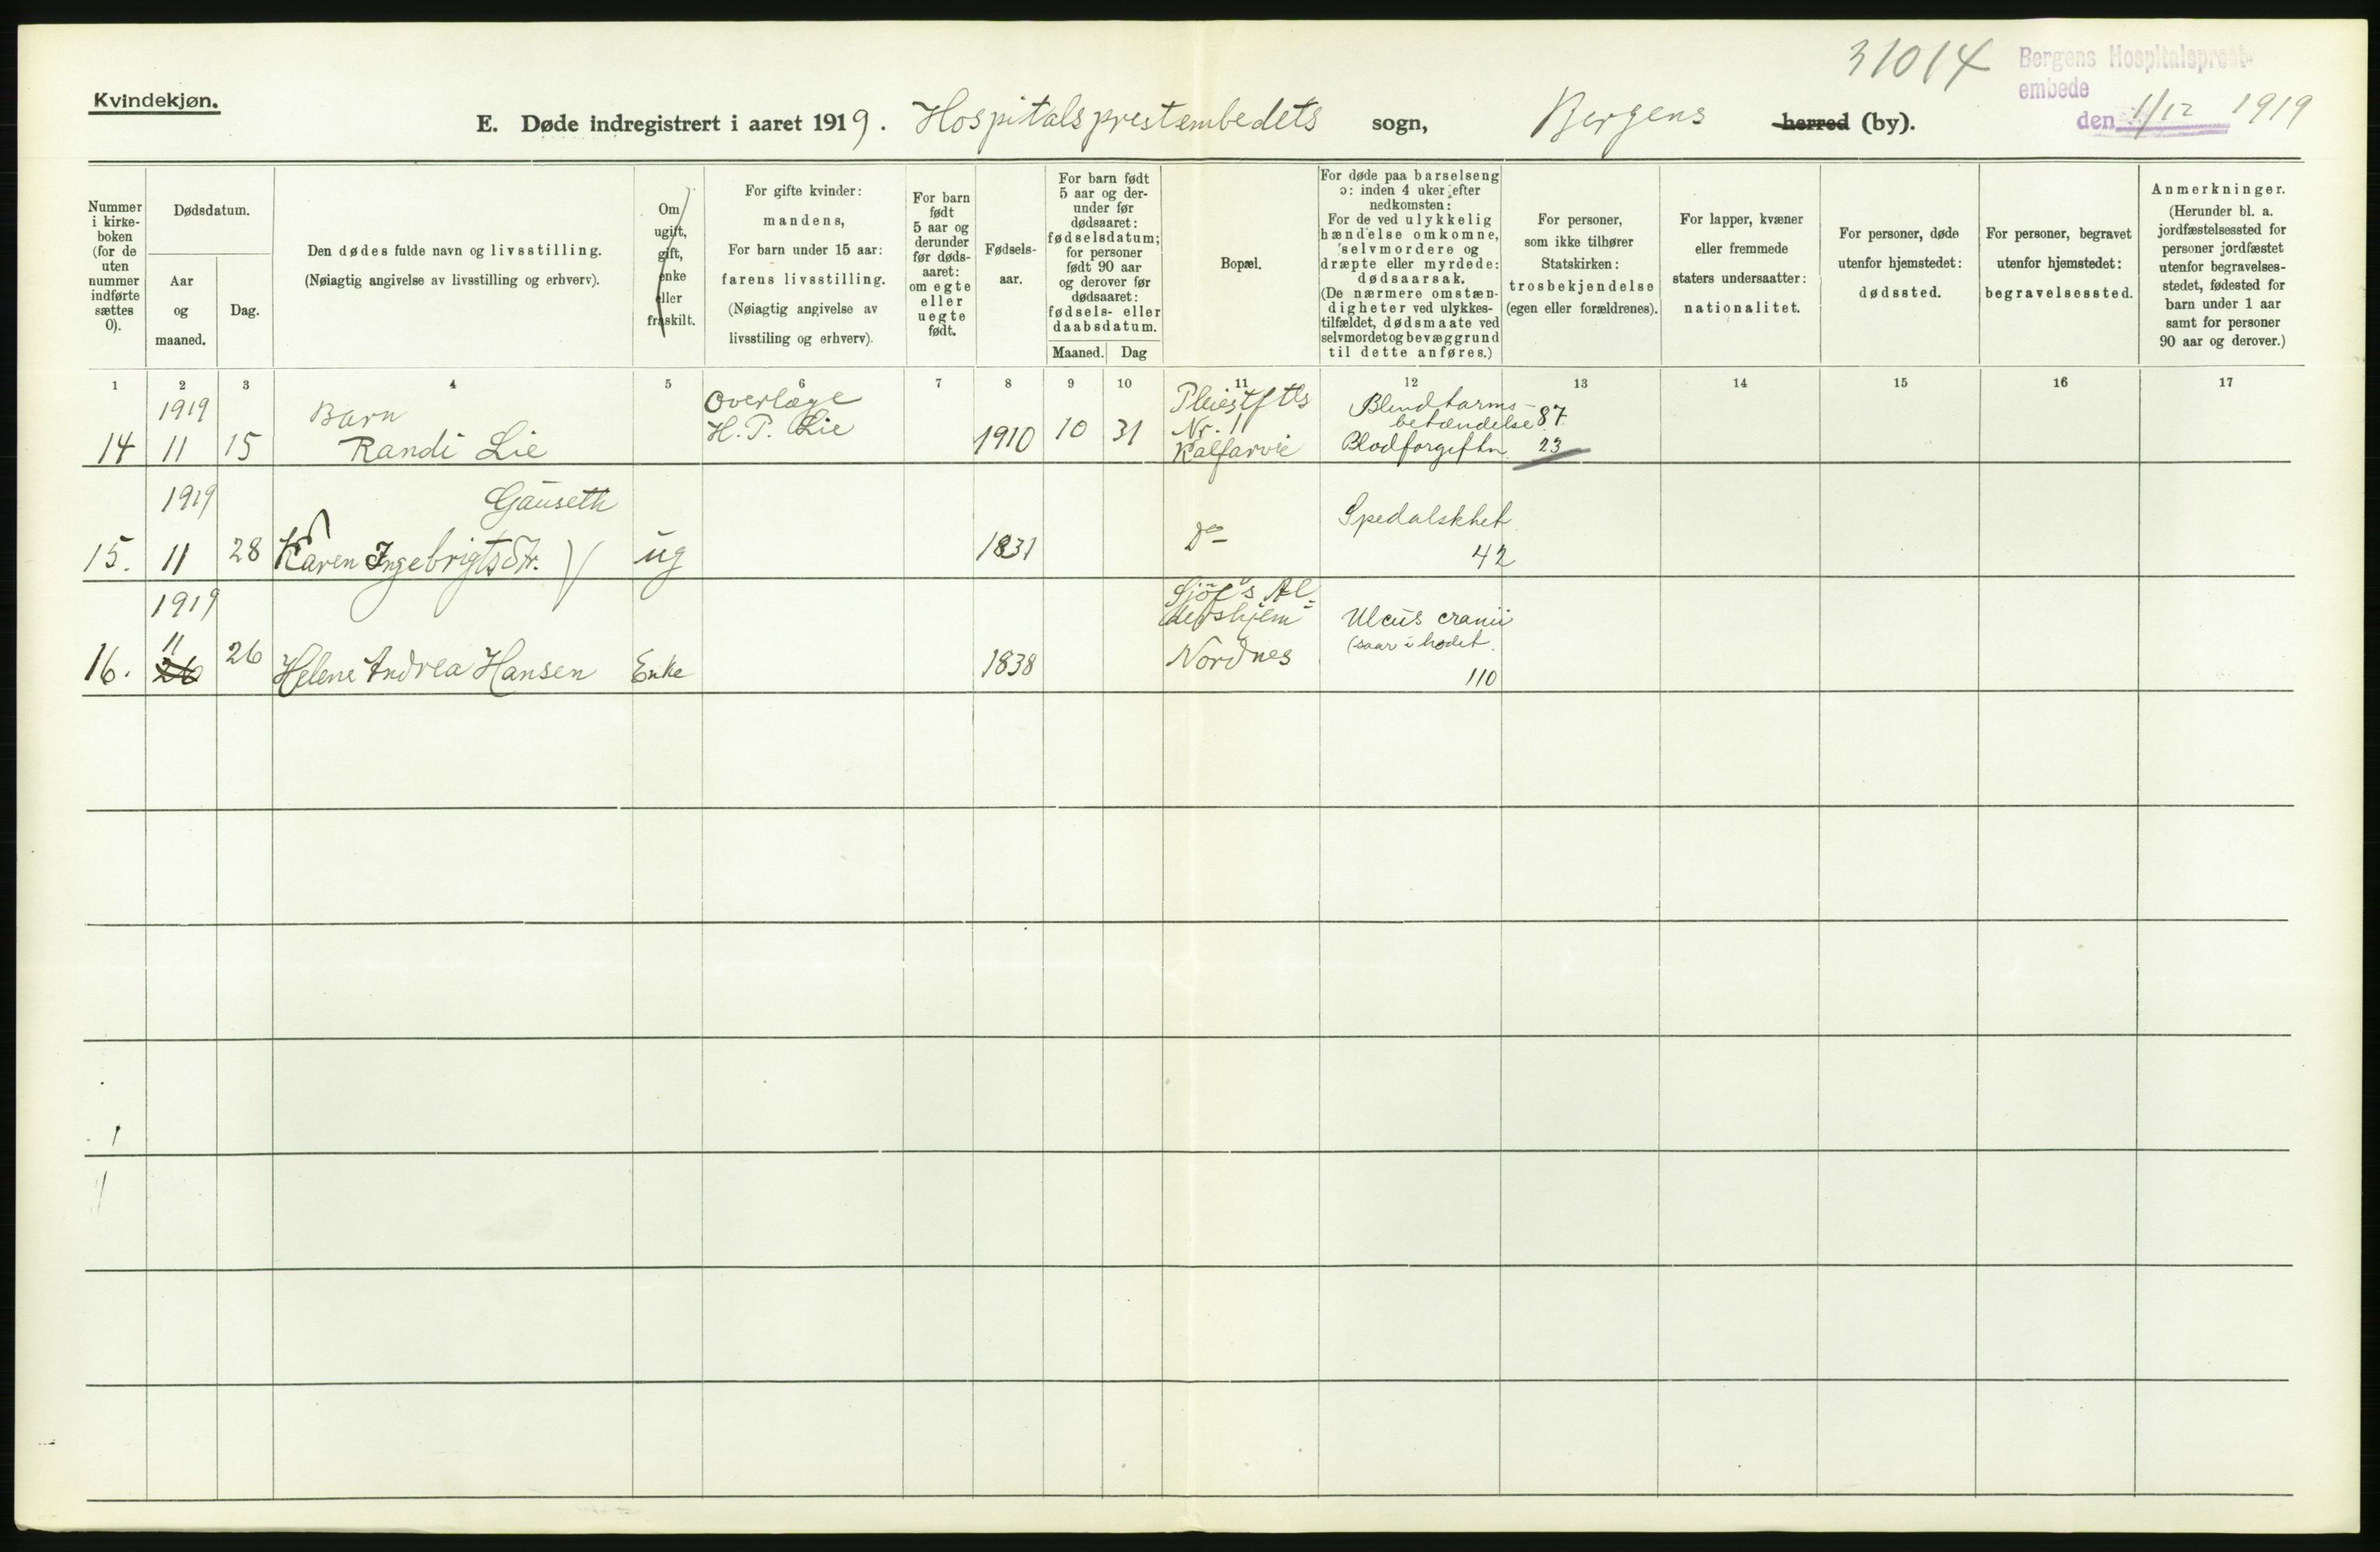 31014
Bergens Hospitalsprest-
embede
den 1/12 1919
Kvindekjøn.
E. Døde indregistrert i aaret 1919. Hospitalsprestembedets sogn, Bergens herred (by).
Nummer
i kirke-
boken
(for de
uten
nummer
indførte
sættes
0).
Dødsdatum.
Aar
og
maaned.
Dag.
Den dødes fulde navn og livsstilling.
(Nøiagtig angivelse av livsstilling og erhverv).
Om
ugift,
gift,
enke
eller
fraskilt.
For gifte kvinder:
mandens,
For barn under 15 aar:
farens livsstilling.
(Nøiagtig angivelse av
livsstiling og erhverv).
For barn
født
5 aar og
derunder
før døds-
aaret:
om egte
eller
uegte
født.
Fødsels-
aar.
For barn født
5 aar og der-
under før
dødsaaret:
fødselsdatum;
for personer
født 90 aar
og derover før
dødsaaret:
fødsels- eller
daabsdatum.
Maaned. Dag
Bopæl.
For døde paa barselseng
ɔ: inden 4 uker efter
nedkomsten:
For de ved ulykkelig
hændelse omkomne,
selvmordere og
dræpte eller myrdede:
dødsaarsak.
(De nærmere omstæn-
digheter ved ulykkes-
tilfældet, dødsmaate ved
selvmordet og bevæggrund
til dette anføres.)
For personer,
som ikke tilhører
Statskirken:
trosbekjendelse
(egen eller forældrenes).
For lapper, kvæner
eller fremmede
staters undersaatter:
nationalitet.
For personer, døde
utenfor hjemstedet:
dødssted.
For personer, begravet
utenfor hjemstedet:
begravelsessted.
Anmerkninger.
(Herunder bl. a.
jordfæstelsessted for
personer jordfæstet
utenfor begravelses-
stedet, fødested for
barn under 1 aar
samt for personer
90 aar og derover.)
1 2 3 4 5 6 7 8 9 10 11 12 13 14 15 16 17
14
1919
11
15
Barn
Randi Lie
Overlæge
H. P. Lie
1910
10
31
Pleiestftls
Nr. 1
Kalfarvie
Blindtarms-
betændelse 87
Blodforgiftn. 23
15.
1919
11
28
Gauseth
Karen Ingebrigtsdtr.
ug
1831
Do
Spedalskhet
42
16.
1919
11
26
26
Helene Andrea Hansen
Enke
1838
Sjöf's Al-
dershjem
Nordnes
Ulcus cranii
(saar i hodet.
110